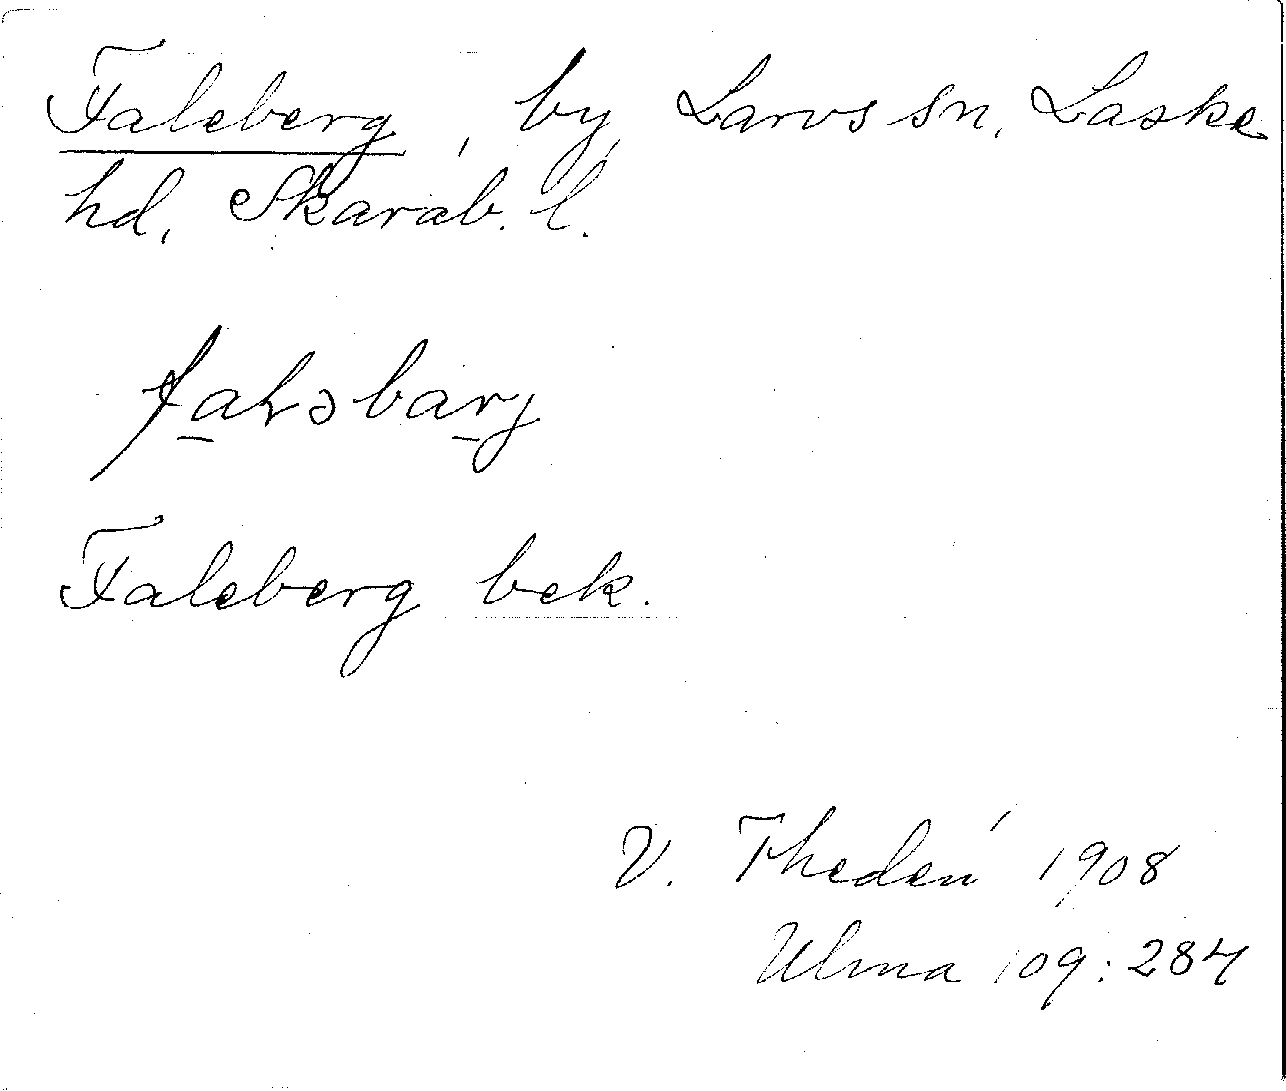 Faleberg, by, Larvs sn, Laske
hd, Skarab. l.
faḷəbarj
Faleberg bek.
V. Thedén 1908
Ulma 109:284